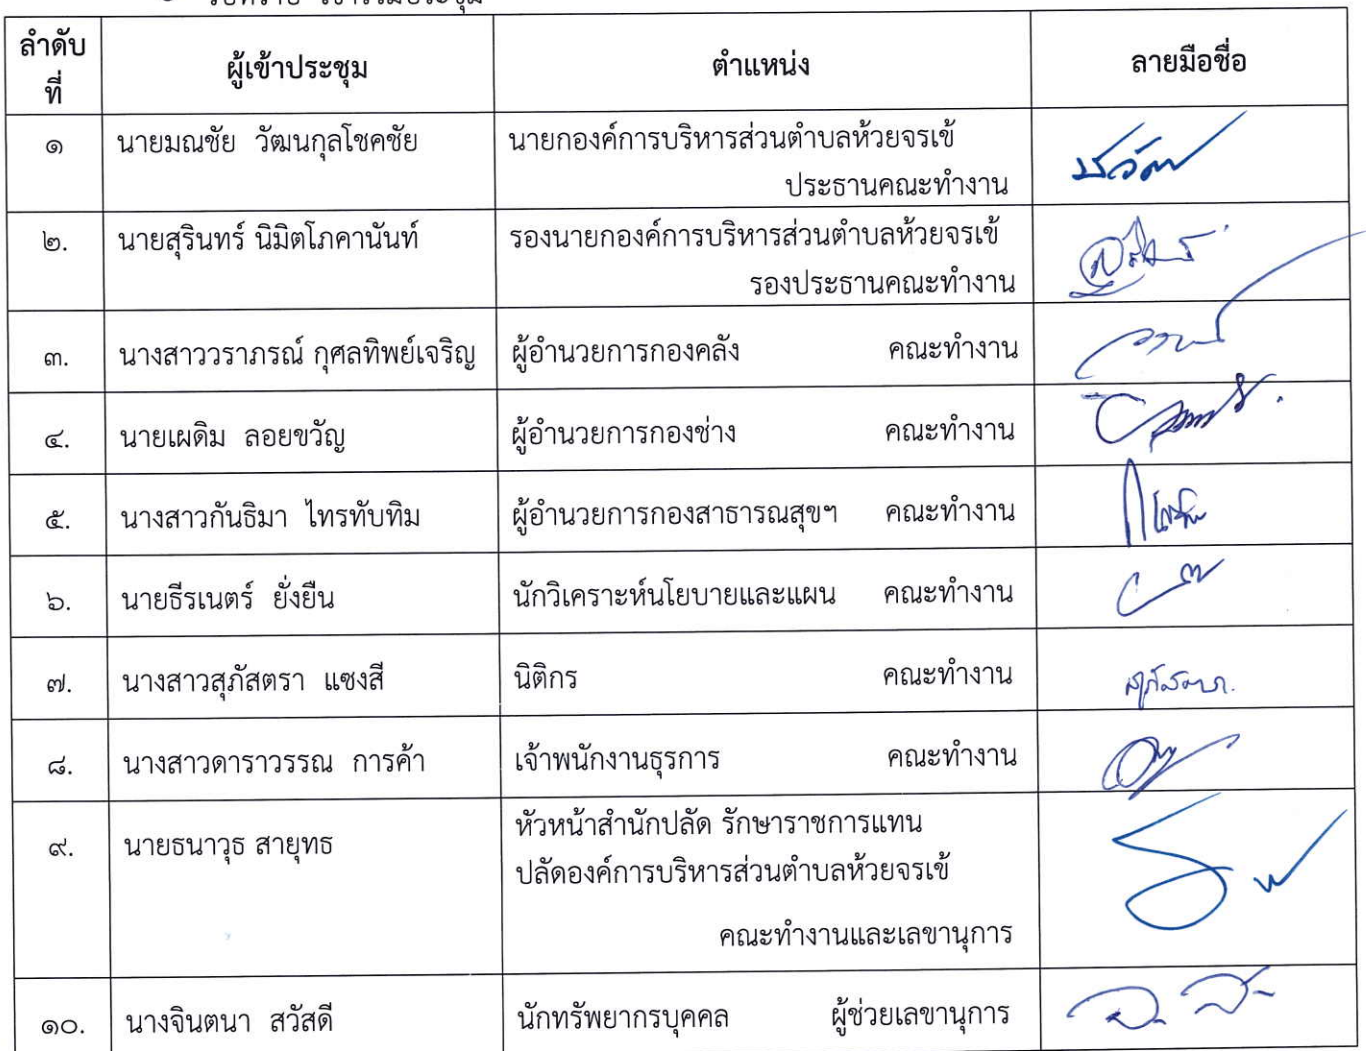 ลำดับที่ ผู้เข้าประชุม ตำแหน่ง ลายมือชื่อ
๑ นายมณชัย วัฒนกุลโชคชัย นายกองค์การบริหารส่วนตำบลห้วยจรเข้
ประธานคณะทำงาน
๒. นายสุรินทร์ นิมิตโภคานันท์ รองนายกองค์การบริหารส่วนตำบลห้วยจรเข้
รองประธานคณะทำงาน
๓. นางสาววราภรณ์ กุศลทิพย์เจริญ ผู้อำนวยการกองคลัง คณะทำงาน
๔. นายเผดิม ลอยขวัญ ผู้อำนวยการกองช่าง คณะทำงาน
๕. นางสาวกันธิมา ไทรทับทิม ผู้อำนวยการกองสาธารณสุขฯ คณะทำงาน
๖. นายธีรเนตร์ ยั่งยืน นักวิเคราะห์นโยบายและแผน คณะทำงาน
๗. นางสาวสุภัสตรา แซงสี นิติกร คณะทำงาน สุภัสตรา.
๘. นางสาวดาราวรรณ การค้า เจ้าพนักงานธุรการ คณะทำงาน
๙. นายธนาวุธ สายุทธ หัวหน้าสำนักปลัด รักษาราชการแทน
ปลัดองค์การบริหารส่วนตำบลห้วยจรเข้
คณะทำงานและเลขานุการ
๑๐. นางจินตนา สวัสดี นักทรัพยากรบุคคล ผู้ช่วยเลขานุการ